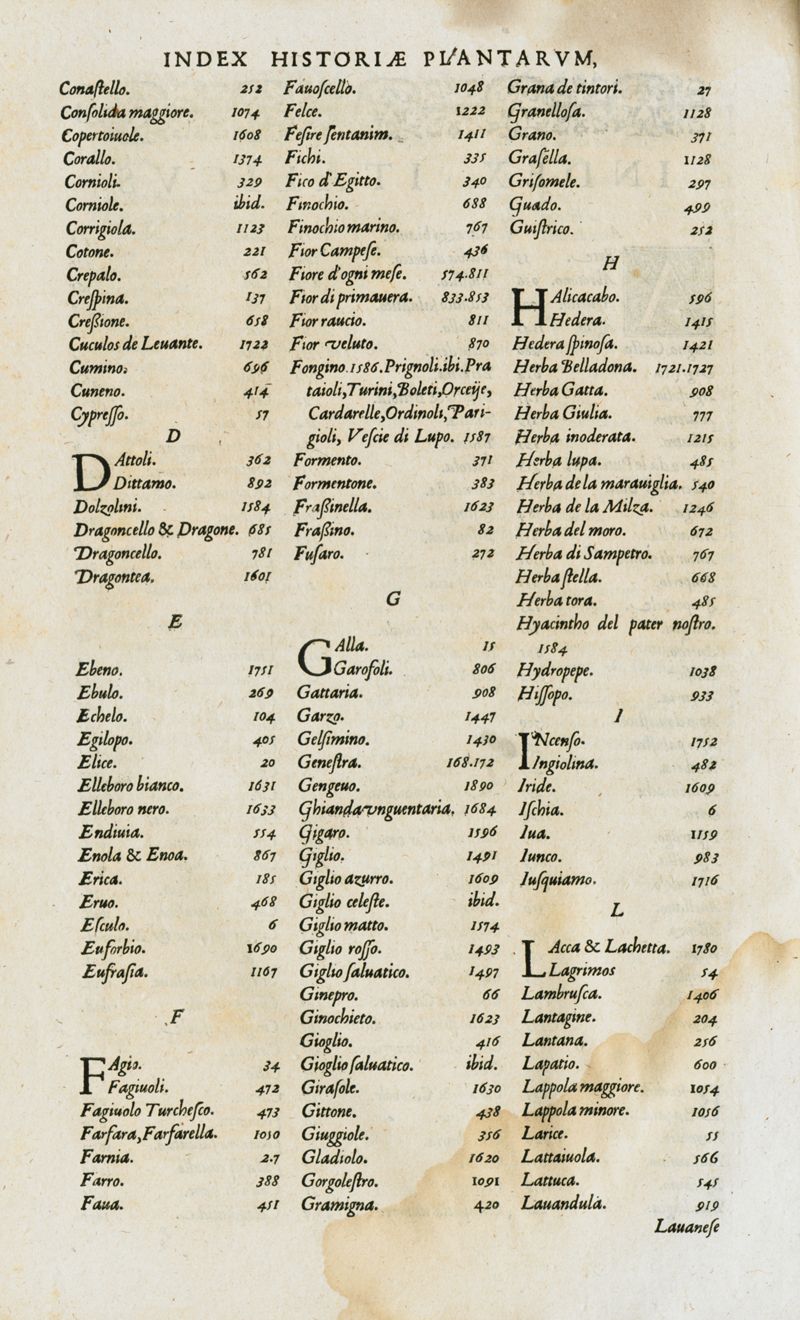 INDEX HISTORIÆ PLANTARVM,
Conaſtello. 252
Conſolida maggiore. 1074
Copertoiuole. 1608
Corallo. 1374
Cornioli. 329
Corniole. ibid.
Corrigiola. 1123
Cotone. 221
Crepalo. 562
Creſpina. 137
Creſsione. 658
Cuculos de Leuante. 1722
Cumino. 696
Cuneno. 414
Cypreſſo. 57
D
DAttoli. 362
Dittamo. 892
Dolzolini. 1584
Dragoncello & Dragone. 685
Dragoncello. 781
Dragontea. 1601
E
Ebeno. 1751
Ebulo. 269
Echelo. 104
Egilopo. 405
Elice. 20
Elleboro bianco. 1631
Elleboro nero. 1633
Endiuia. 554
Enola & Enoa. 867
Erica. 185
Eruo. 468
Eſculo. 6
Euforbio. 1690
Eufraſia. 1167
F
FAgio. 34
Fagiuoli. 472
Fagiuolo Turcheſco. 473
Farfara, Farfarella. 1050
Farnia. 2.7
Farro. 388
Faua. 451
Fauoſcello. 1048
Felce. 1222
Feſire ſentanim. 1411
Fichi. 335
Fico d'Egitto. 340
Finochio. 688
Finochio marino. 767
Fior Campeſe. 436
Fiore d'ogni meſe. 574.811
Fior di primauera. 833.853
Fior raucio. 811
Fior veluto. 870
Fongino. 1586. Prignoli. ibi. Pra
taioli, Turini, Boleti, Orceije,
Cardarelle, Ordinoli, Pari-
gioli, Veſcie di Lupo. 1587
Formento. 371
Formentone. 383
Fraſsinella. 1623
Fraſsino. 82
Fuſaro. 272
G
GAlla. 15
Garofoli. 806
Gattaria. 908
Garzo. 1447
Gelſimino. 1430
Geneſtra. 168.172
Gengeuo. 1890
Ghianda vnguentaria. 1684
Gigaro. 1596
Giglio. 1491
Giglio azurro. 1609
Giglio celeſte. ibid.
Giglio matto. 1574
Giglio roſſo. 1493
Giglio ſaluatico. 1497
Ginepro. 66
Ginochieto. 1623
Gioglio. 416
Gioglio ſaluatico. ibid.
Giraſole. 1630
Gittone. 438
Giuggiole. 356
Gladiolo. 1620
Gorgoleſtro. 1091
Gramigna. 420
Grana de tintori. 27
Granelloſa. 1128
Grano. 371
Graſella. 1128
Griſomele. 297
Guado. 499
Guiſtrico. 252
H
HAlicacabo. 596
Hedera. 1415
Hedera ſpinoſa. 1421
Herba Belladona. 1721.1727
Herba Gatta. 908
Herba Giulia. 777
Herba inoderata. 1215
Herba lupa. 485
Herba de la marauiglia. 540
Herba de la Milza. 1246
Herba del moro. 672
Herba di Sampetro. 767
Herba ſtella. 668
Herba tora. 485
Hyacintho del pater noſtro.
1584
Hydropepe. 1038
Hiſſopo. 933
I
INcenſo. 1752
Ingiolina. 482
Iride. 1609
Iſchia. 6
Iua. 1159
Iunco. 983
Iuſquiamo. 1716
L
LAcca & Lachetta. 1780
Lagrimos 54
Lambruſca. 1406
Lantagine. 204
Lantana. 256
Lapatio. 600
Lappola maggiore. 1054
Lappola minore. 1056
Larice. 55
Lattaiuola. 566
Lattuca. 545
Lauandula. 919
Lauaneſe